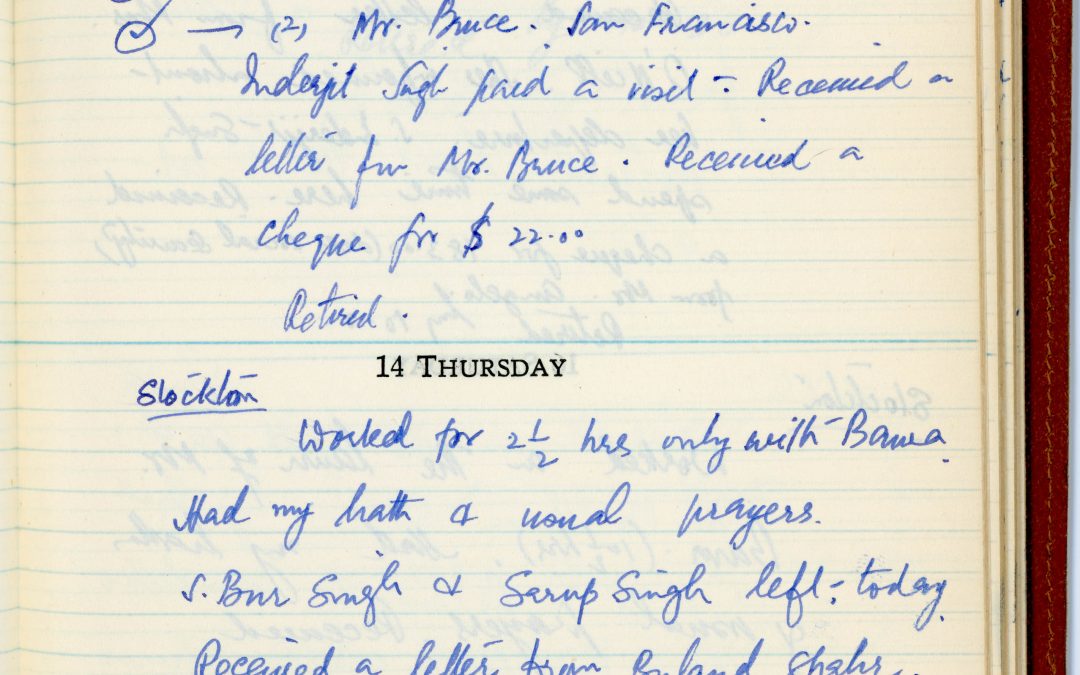 → (2) Mr. Bruce. San Francisco.
Inderjit Singh paid a visit - Received a
letter fm Mr. Bruce. Received a
cheque for $ 22.00
Retired.
14 THURSDAY
Stockton
Worked for 2 1/2 hrs only with Bawa.
Had my bath & usual prayers.
S. Bur Singh & Sarup Singh left - today.
Received a letter from Buland Shahr.